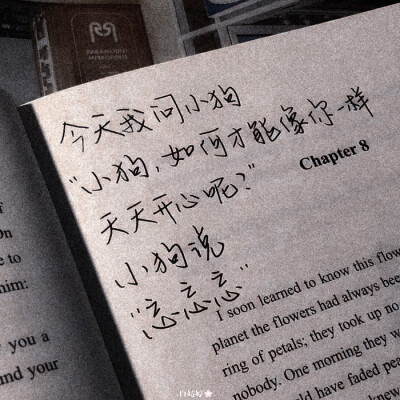 今天我问小狗
"小狗,如何才能像你一样
天天开心呢?"
小狗说
"忘忘忘"
Chapter 8
I soon learned to know this flow
planet the flowers had always bee
ring of petals; they took up no
nobody. One morning they w
ld have faded pea
knew
On
e to
him:
you a
and your